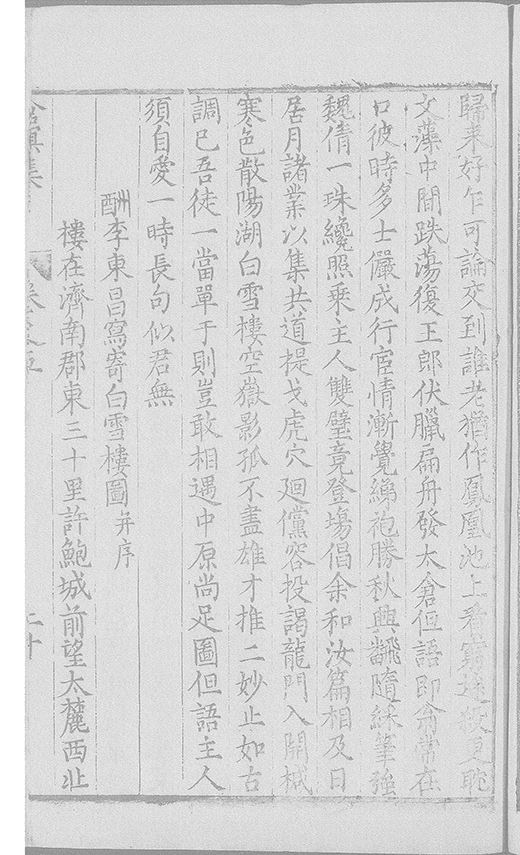 歸来好乍可論交到誰老猶作鳳凰池上看窮途皈更耽
文藻中間跌蕩復王郎伏臘扁舟發太倉但語即翕常在
口彼時多士儼成行宦情漸覺綈袍勝秋興翻隨綵筆強
魏倩一珠纔照乗主人雙璧竟登塲倡余和汝篇相及日
居月諸業以集共道提戈虎穴廻儻容投謁龍門入開椷
寒色散陽湖白雪樓空嶽影孤不盡雄才推二妙止如古
調巳吾徒一當單于則豈敢相遇中原尚足圖但語主人
須自愛一時長句似君無
酬李東昌寫寄白雪樓圖并序
樓在濟南郡東三十里許鮑城前望太麓西北